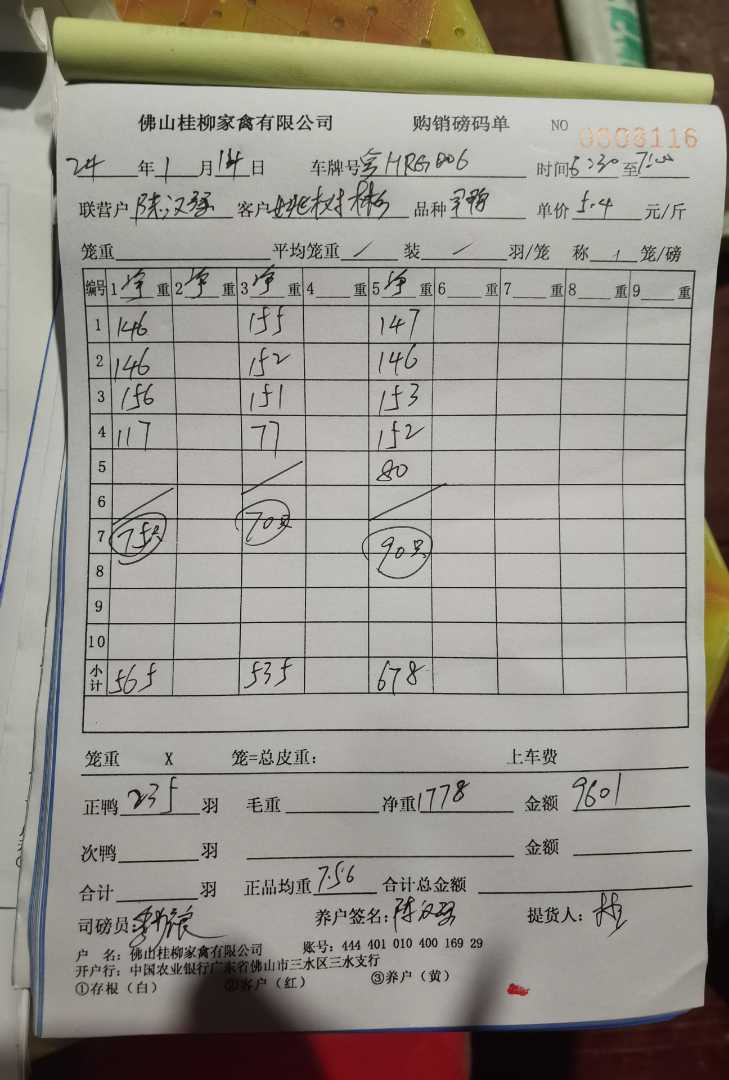 佛山桂柳家禽有限公司 购销磅码单 NO 0003116
24年1月14日 车牌号 HRG006 时间6:30至7:00
联营户陈汉强 客户姚树林 品种 单价5.4元/斤
笼重 平均笼重/ 装/羽/笼 称1笼/磅
编号 1净重 2净重 3净重 4重 5净重 6重 7重 8重 9重
1 146 155 147
2 146 152 146
3 156 151 153
4 117 77 152
5 80
6
7 75只 70只 90只
8
9
10
小计 565 535 678
笼重 X 笼=总皮重： 上车费
正鸭235羽 毛重 净重1778 金额9601
次鸭 羽 金额
合计 羽 正品均重7.56 合计总金额
司磅员： 养户签名：陈汉强 提货人：
户 名：佛山桂柳家禽有限公司 账号：444 401 010 400 169 29
开户行：中国农业银行广东省佛山市三水区三水支行
①存根（白） ②客户（红） ③养户（黄）